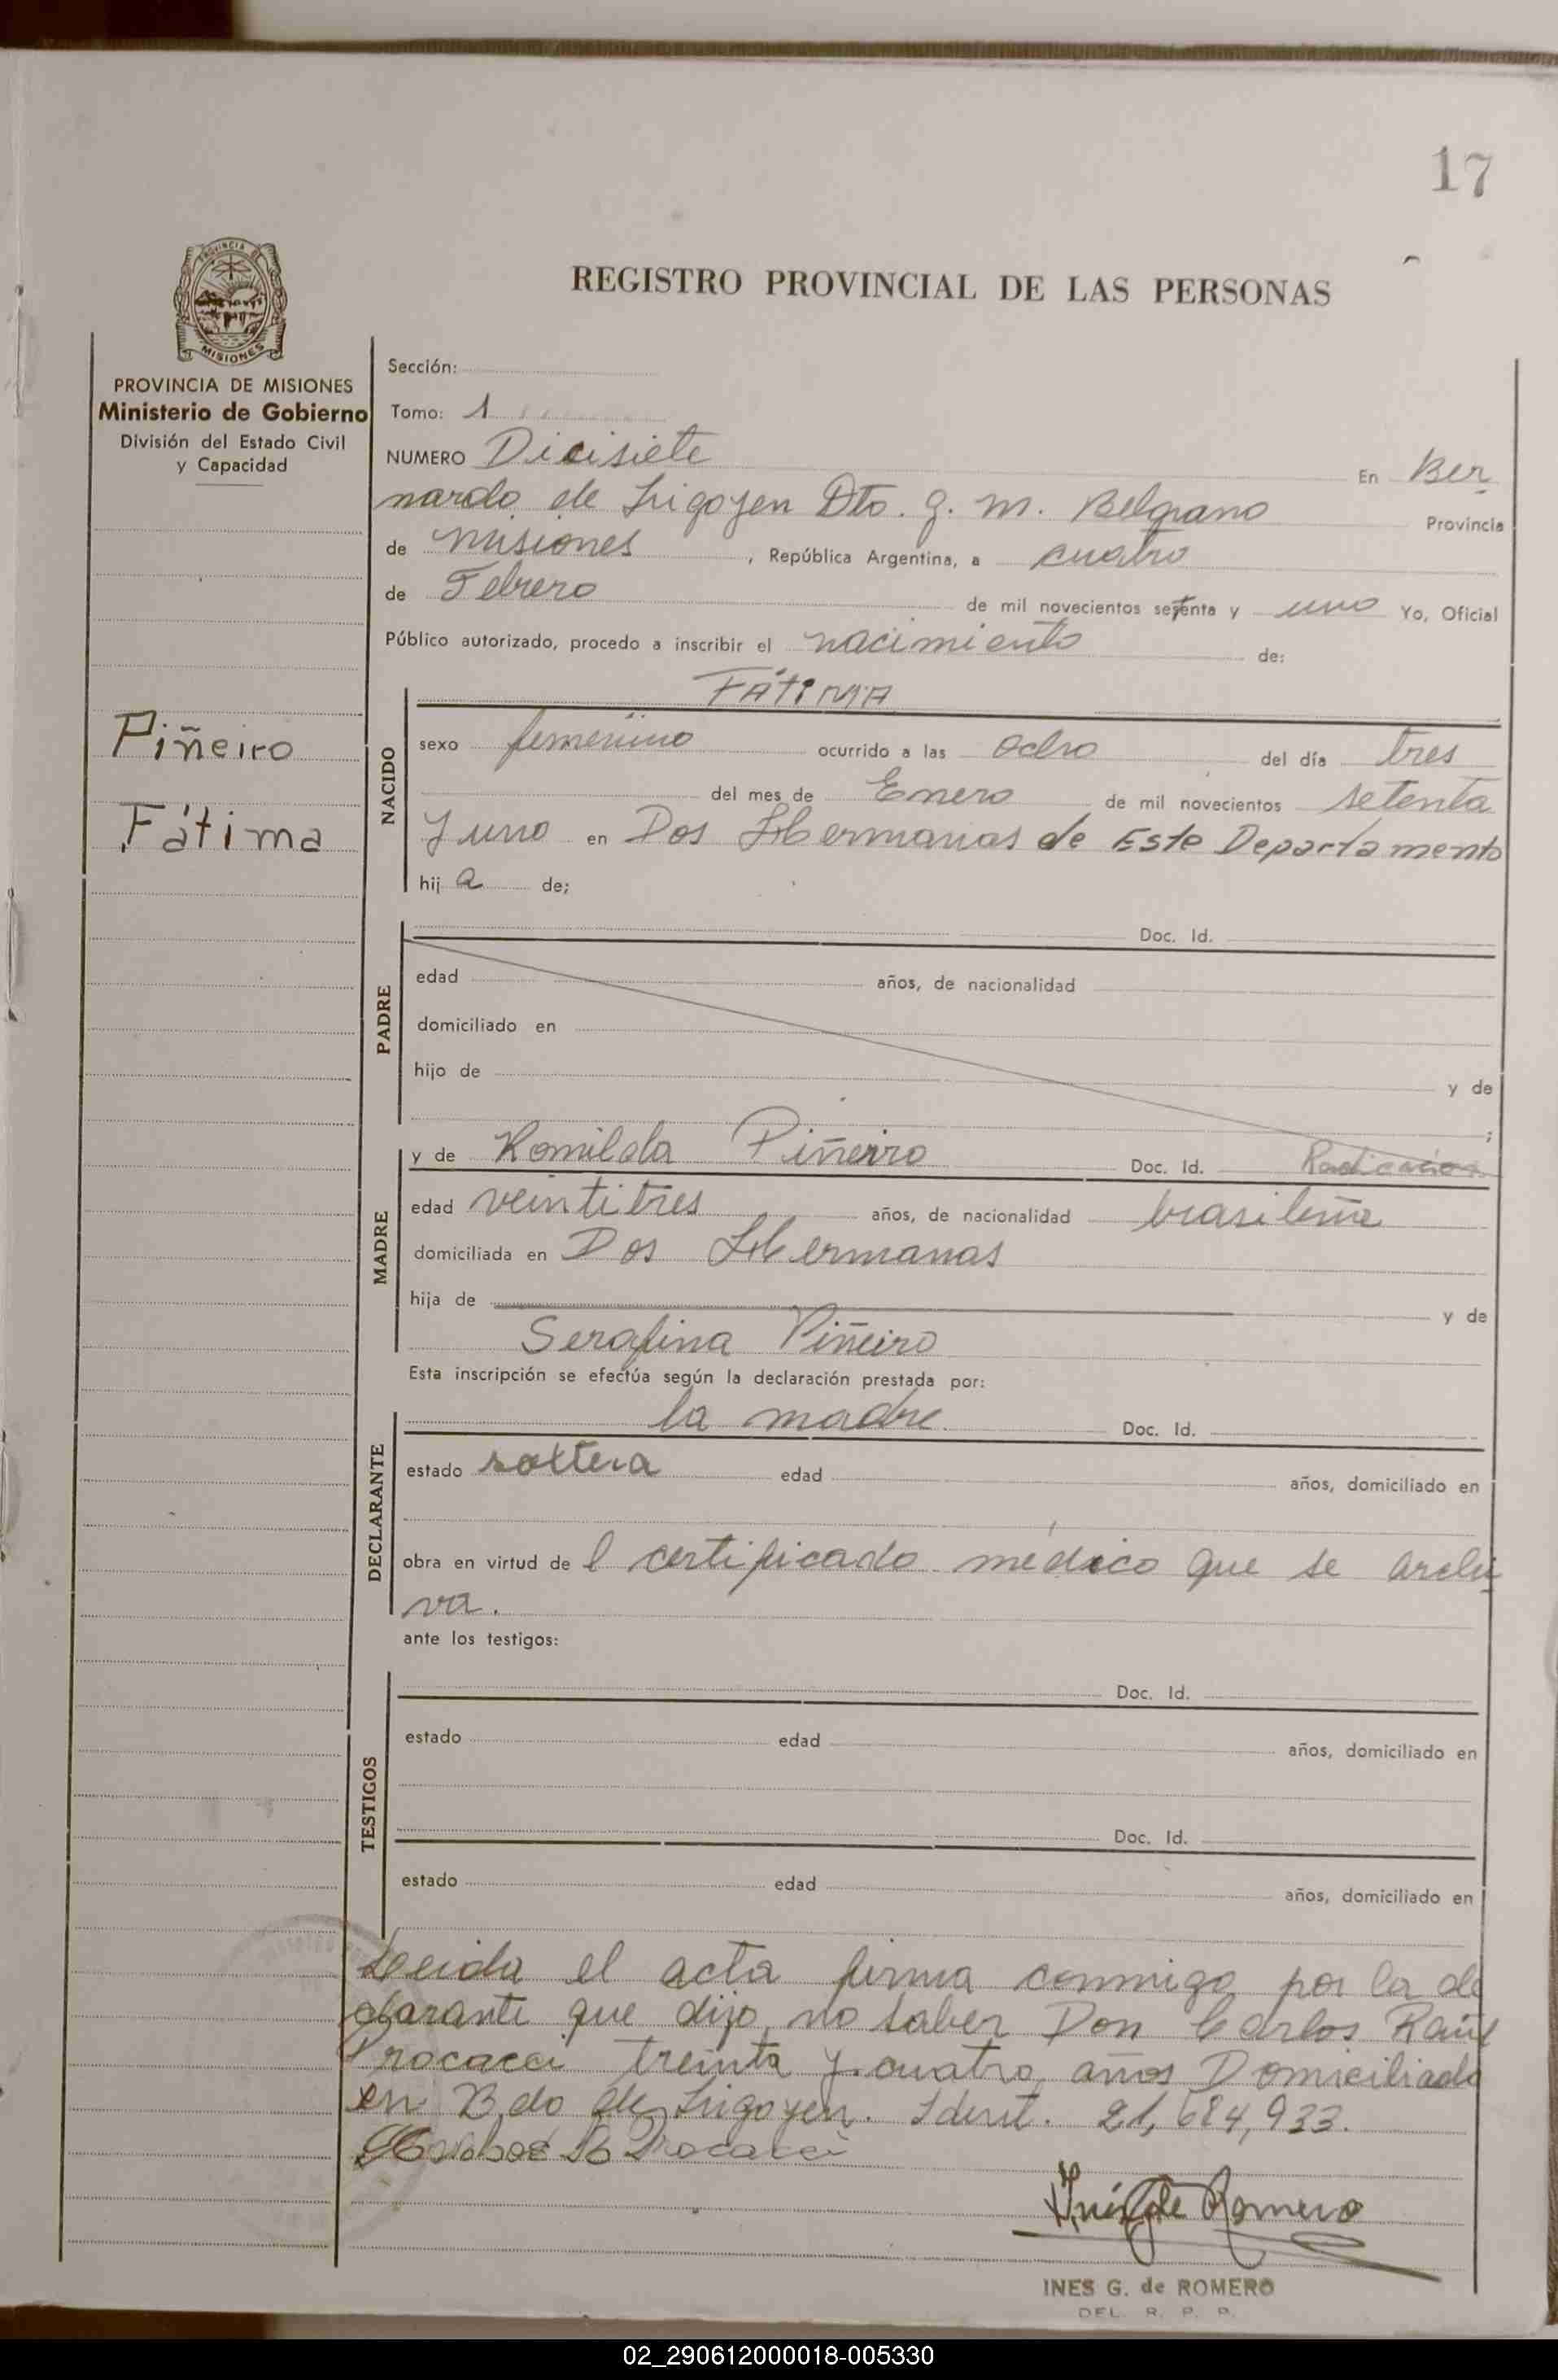 17
PROVINCIA DE
MISIONES
REGISTRO PROVINCIAL DE LAS PERSONAS
PROVINCIA DE MISIONES
Ministerio de Gobierno
División del Estado Civil
y Capacidad
Piñeiro
Fátima
Sección:
Tomo: 1
NUMERO Dicisiete En Ber
nardo de Irigoyen Dto. g. m. Belgrano Provincia
de Misiones, República Argentina, a cuatro
de Febrero de mil novecientos setenta y uno Yo, Oficial
Público autorizado, procedo a inscribir el nacimiento de:
FÁTIMA
NACIDO
sexo femenino ocurrido a las ocho del día tres
del mes de Enero de mil novecientos setenta
y uno en Dos Hermanas de Este Departamento
hij a de;
PADRE
Doc. Id.
edad años, de nacionalidad
domiciliado en
hijo de y de
;
MADRE
y de Romilda Piñeiro Doc. Id. Radicación
edad veintitres años, de nacionalidad brasileña
domiciliada en Dos Hermanas
hija de y de
Serafina Piñeiro
Esta inscripción se efectúa según la declaración prestada por:
DECLARANTE
la madre Doc. Id.
estado soltera edad años, domiciliado en
obra en virtud de l certificado médico que se archi
va.
ante los testigos:
TESTIGOS
Doc. Id.
estado edad años, domiciliado en
Doc. Id.
estado edad años, domiciliado en
Leida el acta firma conmigo por la de
clarante que dijo no saber Don Carlos Raúl
Procacci treinta y cuatro años Domiciliado
en Bdo de Irigoyen. Ident. 21,684,933.
Procacci
Inés G de Romero
INES G. de ROMERO
DEL. R. P. P.
02_290612000018-005330